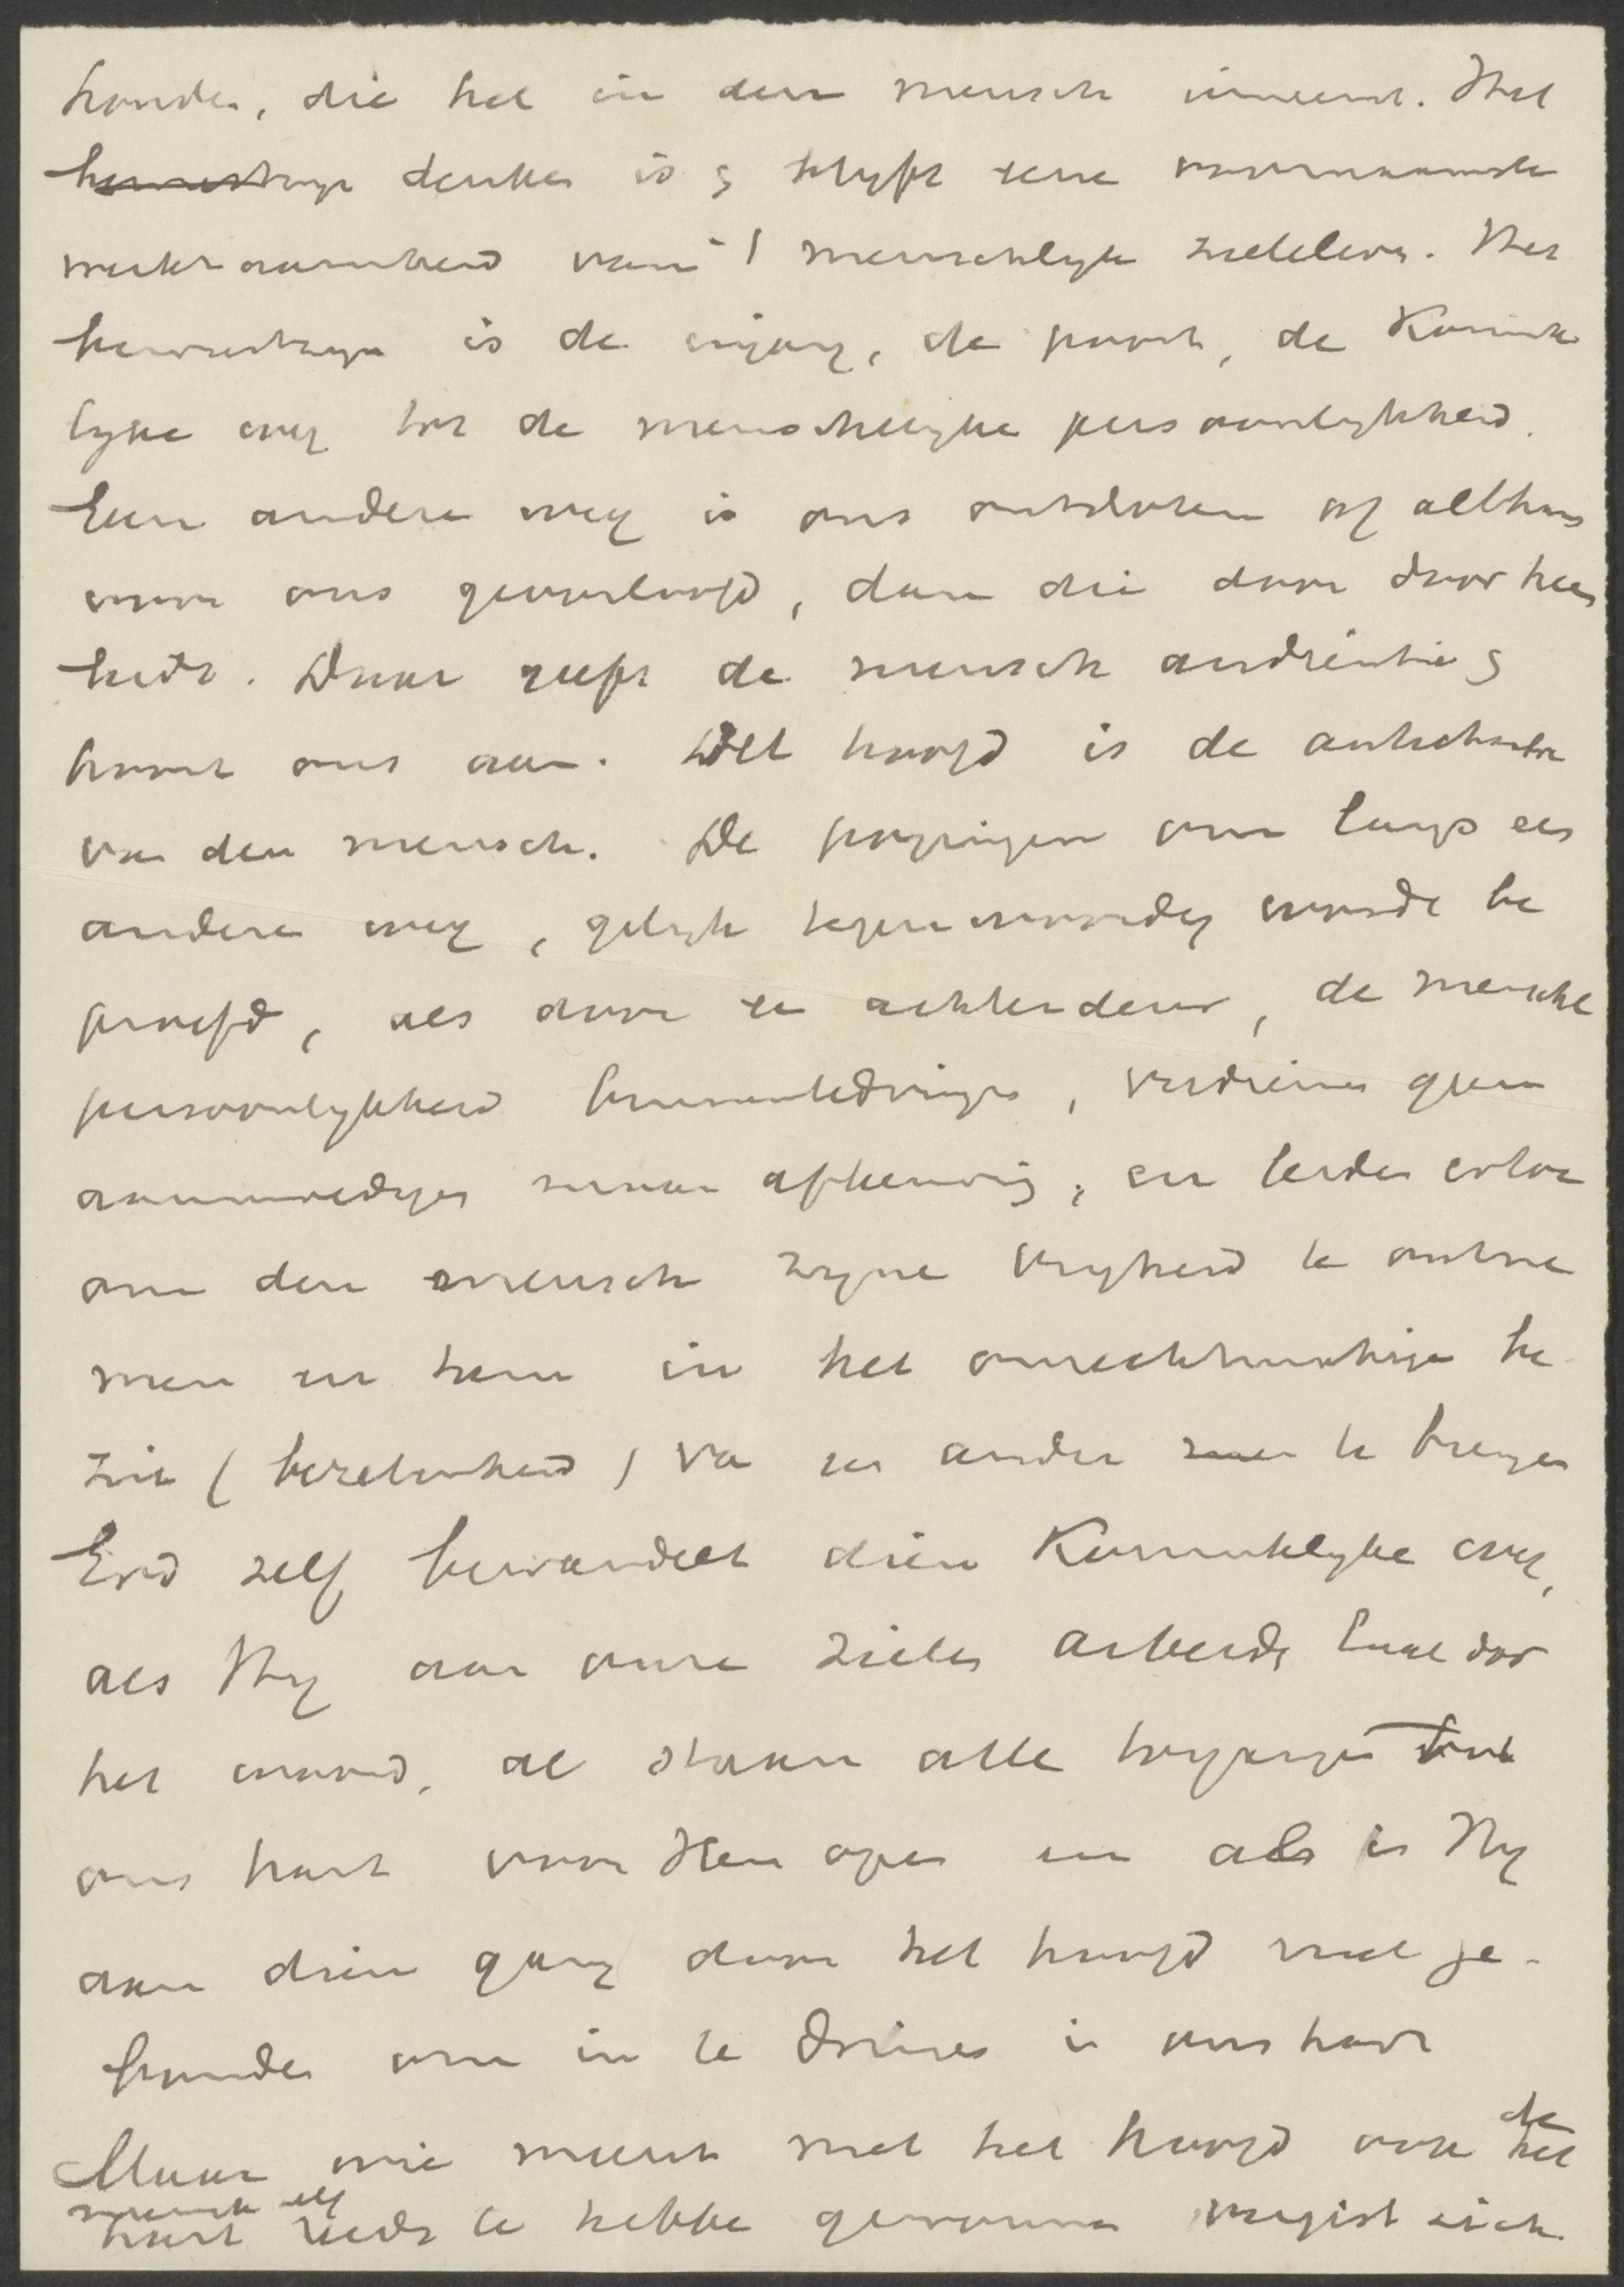 houden, die het in den mensch inneemt. Het
bewustzyn denken is & blyft eene voornaamste
werkzaamheid van 't menschelyk zieleleven. Het
bewustzyn is de ingang, de poort, de Konink
lyke weg tot de menschelyke persoonlykheid.
Een andere weg is ons ontsloten of althans
voor ons geoorloofd, dan die door door heen
leidt. Daar geeft de mensch audientie &
hoort ons aan. Het hoofd is de antichambre
van den mensch. De pogingen om langs een
andere weg, gelyk tegenwoordig wordt be
proefd, als door een achterdeur, de menschel
persoonlykheid binnentedringen, verdienen geen
aanmoediging maar afkeuring, en leiden ertoe
om den mensch zyne vryheid te ontne
men en hem in het onrechtmatige be
zit (bezetenheid) van een ander te brengen
God zelf bewandelt dien Koninklyke weg,
als Hy aan onze zielen arbeidt door
het woord, al staan alle toegangen tot
ons hart voor Hem open en al is Hy
aan dien gang door het hoofd niet ge-
bonden om in te dringen in ons hart
Maar wie meent met het hoofd ook de het
mensch zelf
hart reeds te hebben gewonnen vergist zich.